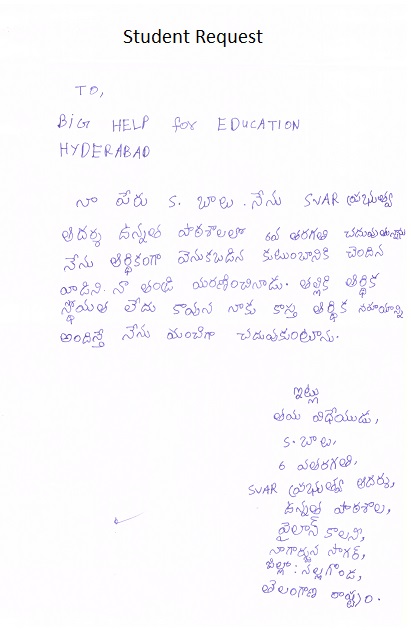 Student Request
TO,
BiG HELP for EDUCATION
HYDERABAD
నా పేరు S. బాలు. నేను SVAR ప్రభుత్వ
ఆదర్శ ఉన్నత పాఠశాలలో 6వ తరగతి చదువుతున్నాను
నేను ఆర్థికంగా వెనుకబడిన కుటుంబానికి చెందిన
వాడిని. నా తండ్రి మరణించినాడు. తల్లికి ఆర్థిక
స్థోమత లేదు కావున నాకు కాస్త ఆర్థిక సహాయాన్ని
అందిస్తే నేను మంచిగా చదువుకుంటాను.
ఇట్లు
తమ విధేయుడు,
S. బాలు,
6 వతరగతి,
SVAR ప్రభుత్వ ఆదర్శ,
ఉన్నత పాఠశాల,
పైలాన్ కాలని,
నాగార్జున సాగర్,
జిల్లా : నల్లగొండ,
తెలంగాణ రాష్ట్రం.